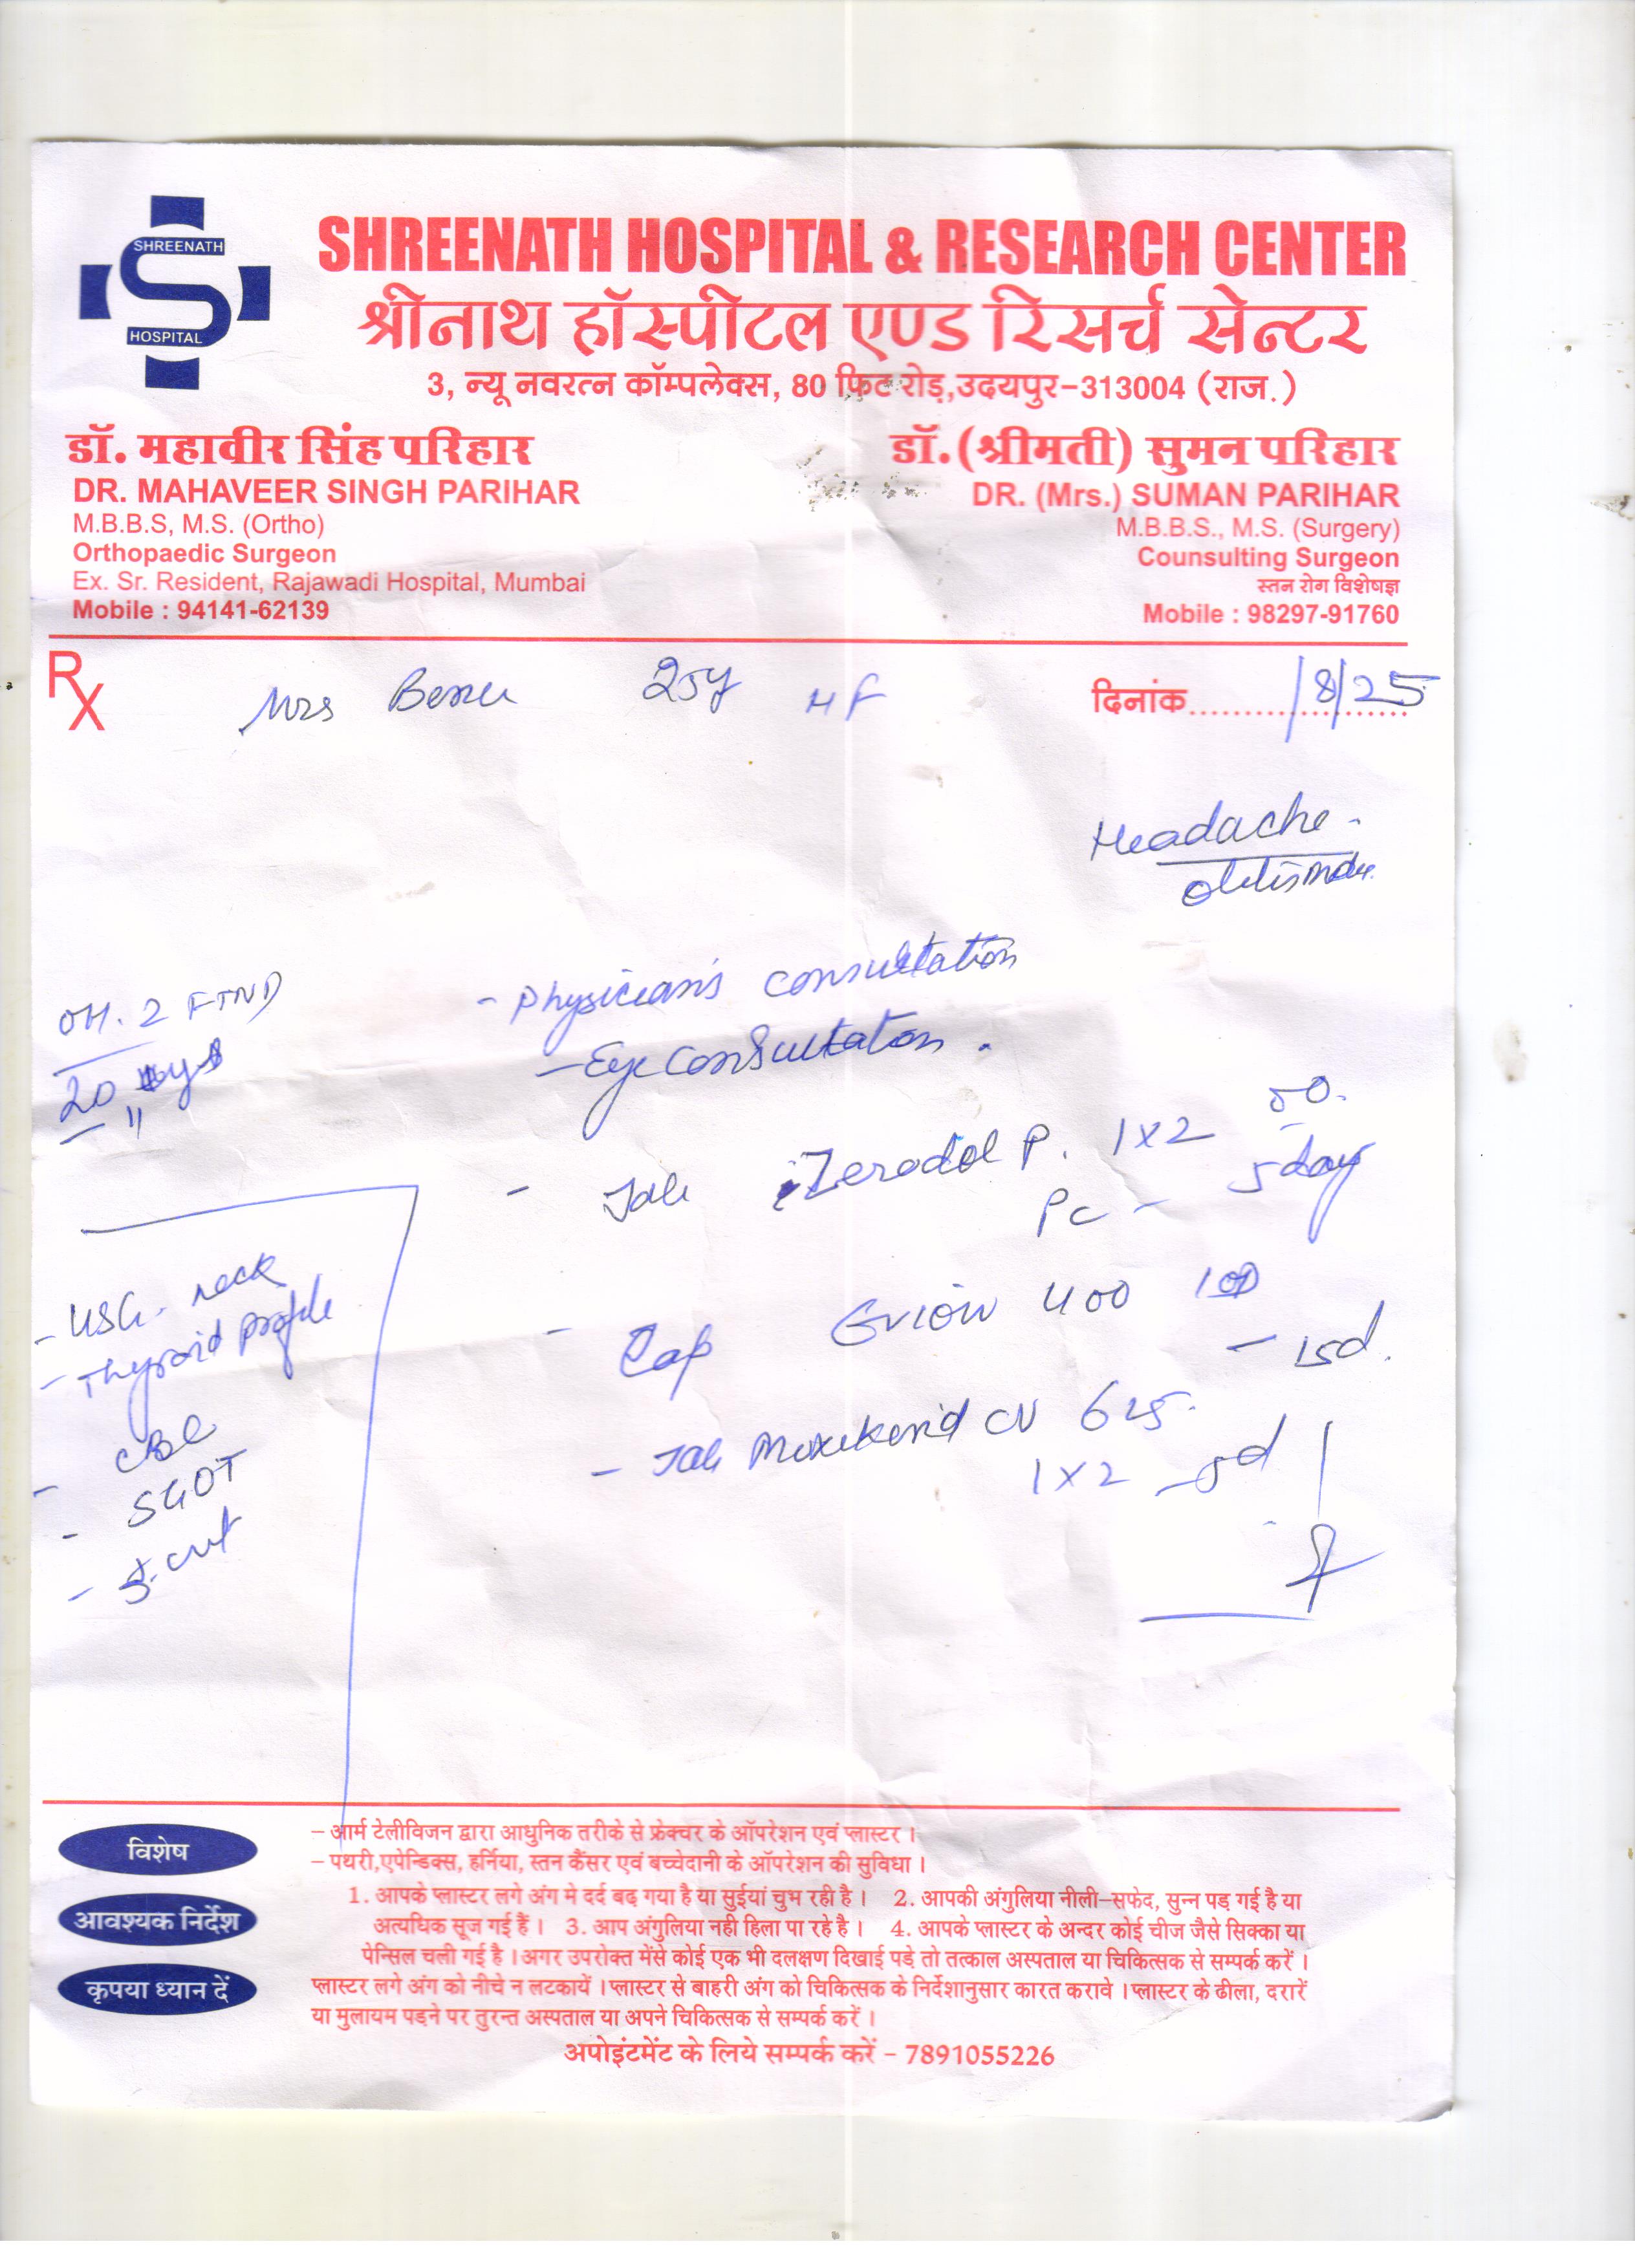 SHREENATH
HOSPITAL
SHREENATH HOSPITAL & RESEARCH CENTER
श्रीनाथ हॉस्पीटल एण्ड रिसर्च सेन्टर
3, न्यू नवरत्न कॉम्पलेक्स, 80 फिट रोड़,उदयपुर-313004 (राज.)
डॉ. महावीर सिंह परिहार
DR. MAHAVEER SINGH PARIHAR
M.B.B.S, M.S. (Ortho)
Orthopaedic Surgeon
Ex. Sr. Resident, Rajawadi Hospital, Mumbai
Mobile : 94141-62139
डॉ. (श्रीमती) सुमन परिहार
DR. (Mrs.) SUMAN PARIHAR
M.B.B.S., M.S. (Surgery)
Counsulting Surgeon
स्तन रोग विशेषज्ञ
Mobile : 98297-91760
Rx
Mrs 25y HF
दिनांक.................... /8/25
Headache -
OH. 2 FTND
20
- Physician's consultation
- Eye Consultation .
- Tab Zerodol P. 1x2
PC - 5 day
- Cap Evion 400 1 OD
- 15d.
- Tab Moxikind CV 625.
1x2 - 5d
- USG. neck
- Thyroid Profile
- CBC
- SGOT
विशेष
- आर्म टेलीविजन द्वारा आधुनिक तरीके से फ्रेक्चर के ऑपरेशन एवं प्लास्टर ।
- पथरी,एपेन्डिक्स, हर्निया, स्तन कैंसर एवं बच्चेदानी के ऑपरेशन की सुविधा ।
आवश्यक निर्देश
1. आपके प्लास्टर लगे अंग मे दर्द बढ़ गया है या सुईयां चुभ रही है । 2. आपकी अंगुलिया नीली-सफेद, सुन्न पड़ गई है या
अत्यधिक सूज गई हैं । 3. आप अंगुलिया नही हिला पा रहे है । 4. आपके प्लास्टर के अन्दर कोई चीज जैसे सिक्का या
पेन्सिल चली गई है । अगर उपरोक्त मेंसे कोई एक भी दलक्षण दिखाई पड़े तो तत्काल अस्पताल या चिकित्सक से सम्पर्क करें ।
कृपया ध्यान दें
प्लास्टर लगे अंग को नीचे न लटकायें । प्लास्टर से बाहरी अंग को चिकित्सक के निर्देशानुसार कारत करावे । प्लास्टर के ढीला, दरारें
या मुलायम पड़ने पर तुरन्त अस्पताल या अपने चिकित्सक से सम्पर्क करें ।
अपोइंटमेंट के लिये सम्पर्क करें - 7891055226